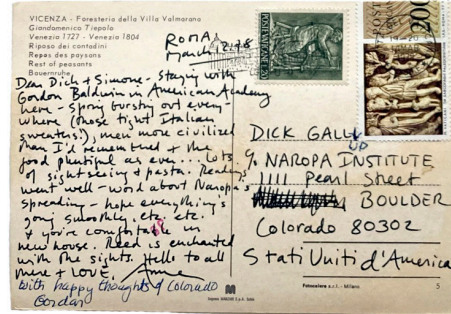 VICENZA - Foresteria della Villa Valmarana
Giandomenico Tiepolo
Venezia 1727 - Venezia 1804
Riposo dei contadini
Repos des paysans
Rest of peasants
Bauernruhe
ROMA
March 2. 78
Dear Dick + Simone - staying with
Gordon Baldwin in American Academy
here - spring bursting out every-
where (those tight Italian
sweaters!), men more civilized
than I'd remembered + the
food plentiful as ever... Lots
of sightseeing + pasta. Reading
went well - word about Naropa's
spreading - hope everything's
going smoothly, etc. etc.
+ you're comfortable in
new house. Reed is enchanted
with the sights. Hello to all
there + LOVE, Anne
With happy thoughts of Colorado
Gordon
POSTE VATICANE
200
DICK GALLUP
% NAROPA INSTITUTE
1111 Pearl Street
BOULDER
Colorado 80302
Stati Uniti d'America
Fotocelere s.r.l. - Milano
5